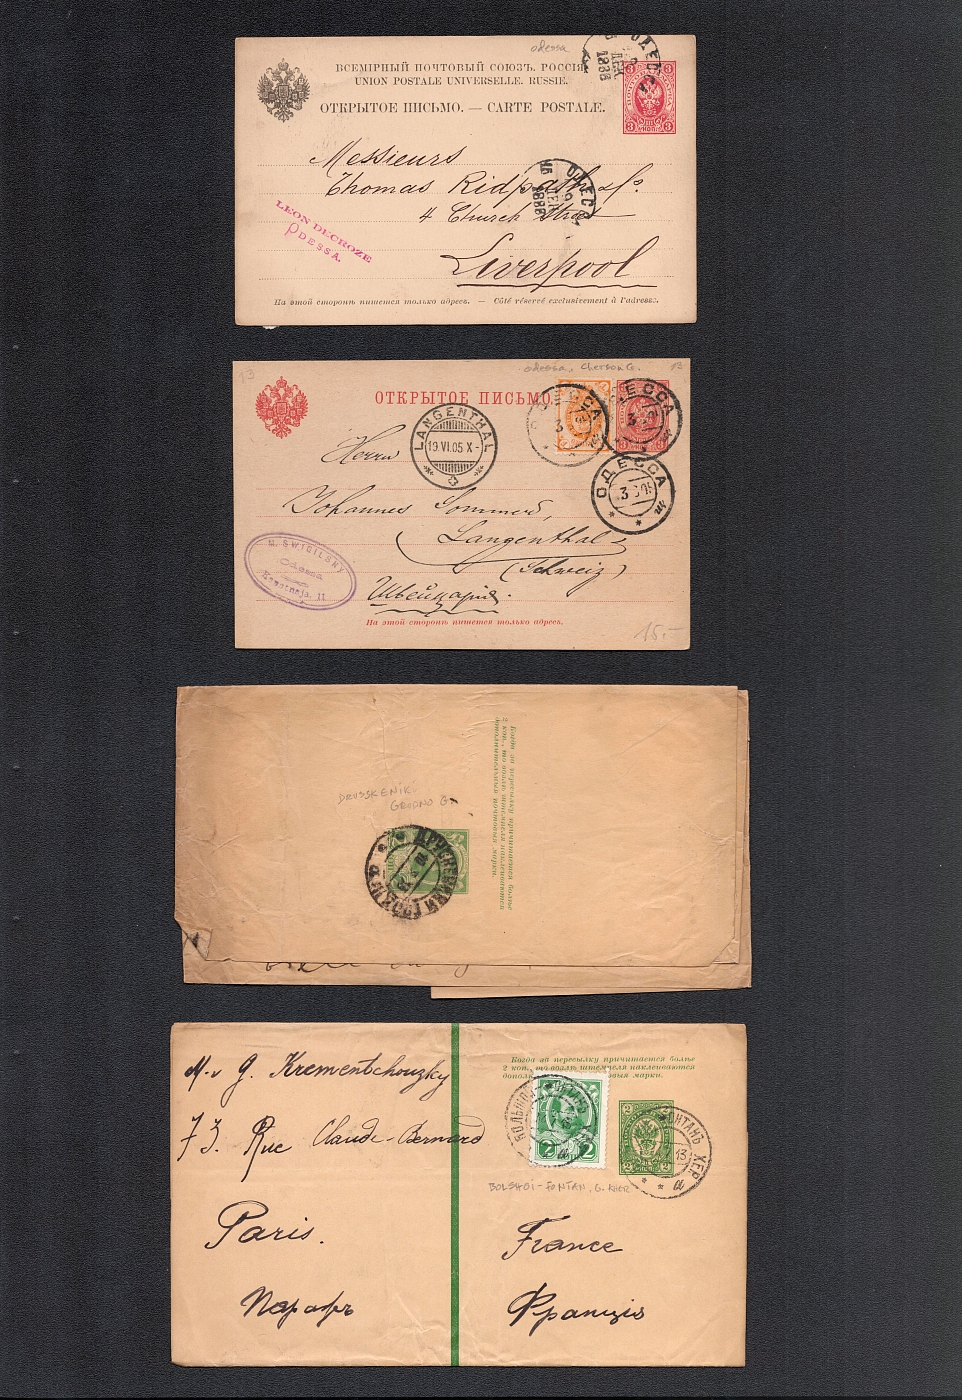 odessa
ОДЕССА
ДЕК
1888
ВСЕМІРНЫЙ ПОЧТОВЫЙ СОЮЗЪ. РОССІЯ.
UNION POSTALE UNIVERSELLE. RUSSIE.
ОТКРЫТОЕ ПИСЬМО. — CARTE POSTALE.
3 3
3 КОП 3
Messieurs
Thomas Ridpath & Co.
4 Church Street
Liverpool
ОДЕССА
1888
LEON DECROZE
ODESSA.
На этой сторонѣ пишется только адресъ. — Côté réservé exclusivement à l'adresse.
13
odessa, Cherson G.
ОТКРЫТОЕ ПИСЬМО.
LANGENTHAL
19.VI.05 X-
ОДЕССА
ОДЕССА
ОДЕССА
Herrn
Johannes Sommer,
Langenthal
(Schweiz)
Швейцария.
M. SWIGILSKY
Odessa
На этой сторонѣ пишется только адресъ.
15.-
Когда за пересылку причитается болѣе
2 коп., то возлѣ штемпеля наклеиваются
дополнительныя почтовыя марки.
DRUSKENIKI
GRODNO G.
ДРУСКЕНИКИ ГРОДН.
M-r G. Krementschouzky
73. Rue Claude-Bernard
Paris.
France
Парижъ
Франція
Когда за пересылку причитается болѣе
2 коп., то возлѣ штемпеля наклеиваются
БОЛЬШОЙ ФОНТАНЪ
2 2
2 2
ФОНТАНЪ ХЕР.
13
BOLSHOI-FONTAN, G. KHER